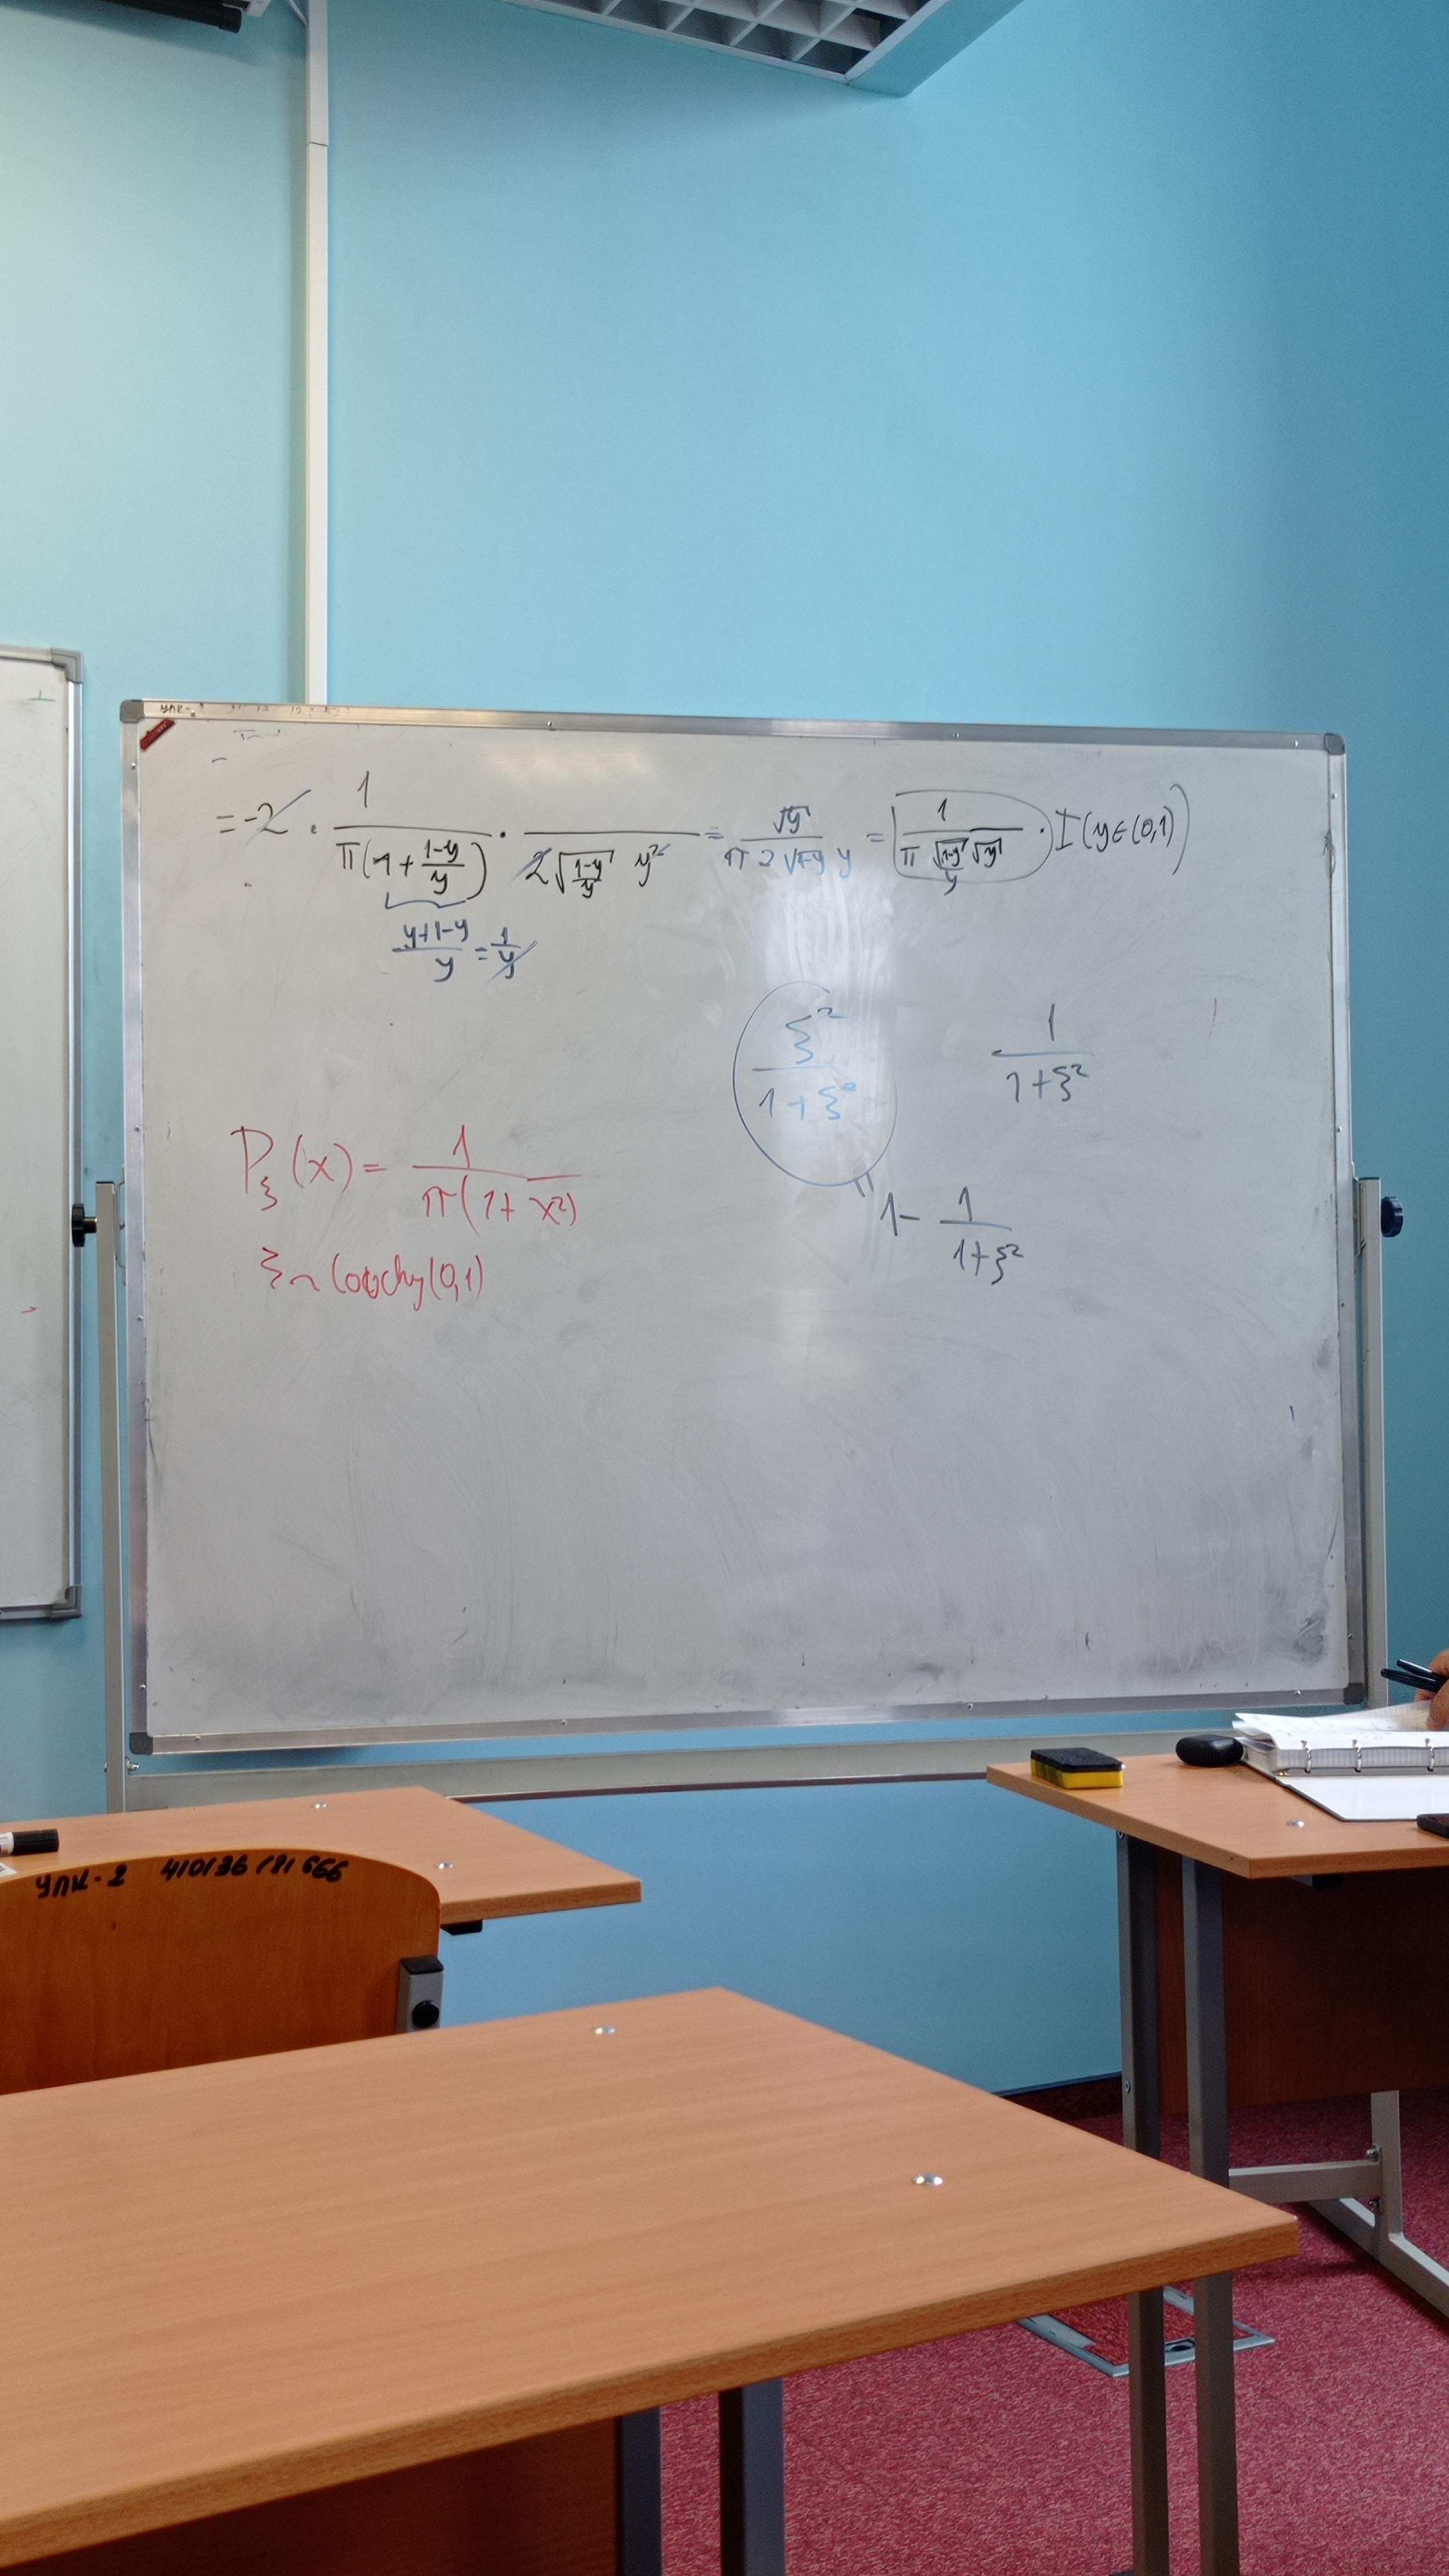 = -2 · 1/(π(1 + (1-y)/y)) · 1/(2√((1-y)/y) y²) = √y/(π 2 √(1-y) y) = 1/(π √(1-y) √y) · I(y ∈ (0,1))
(y+1-y)/y = 1/y
ξ²/(1+ξ²)
1/(1+ξ²)
P_ξ(x) = 1/(π(1+x²))
" 1 - 1/(1+ξ²)
ξ ~ Cauchy(0,1)
УПК-2 410136181666